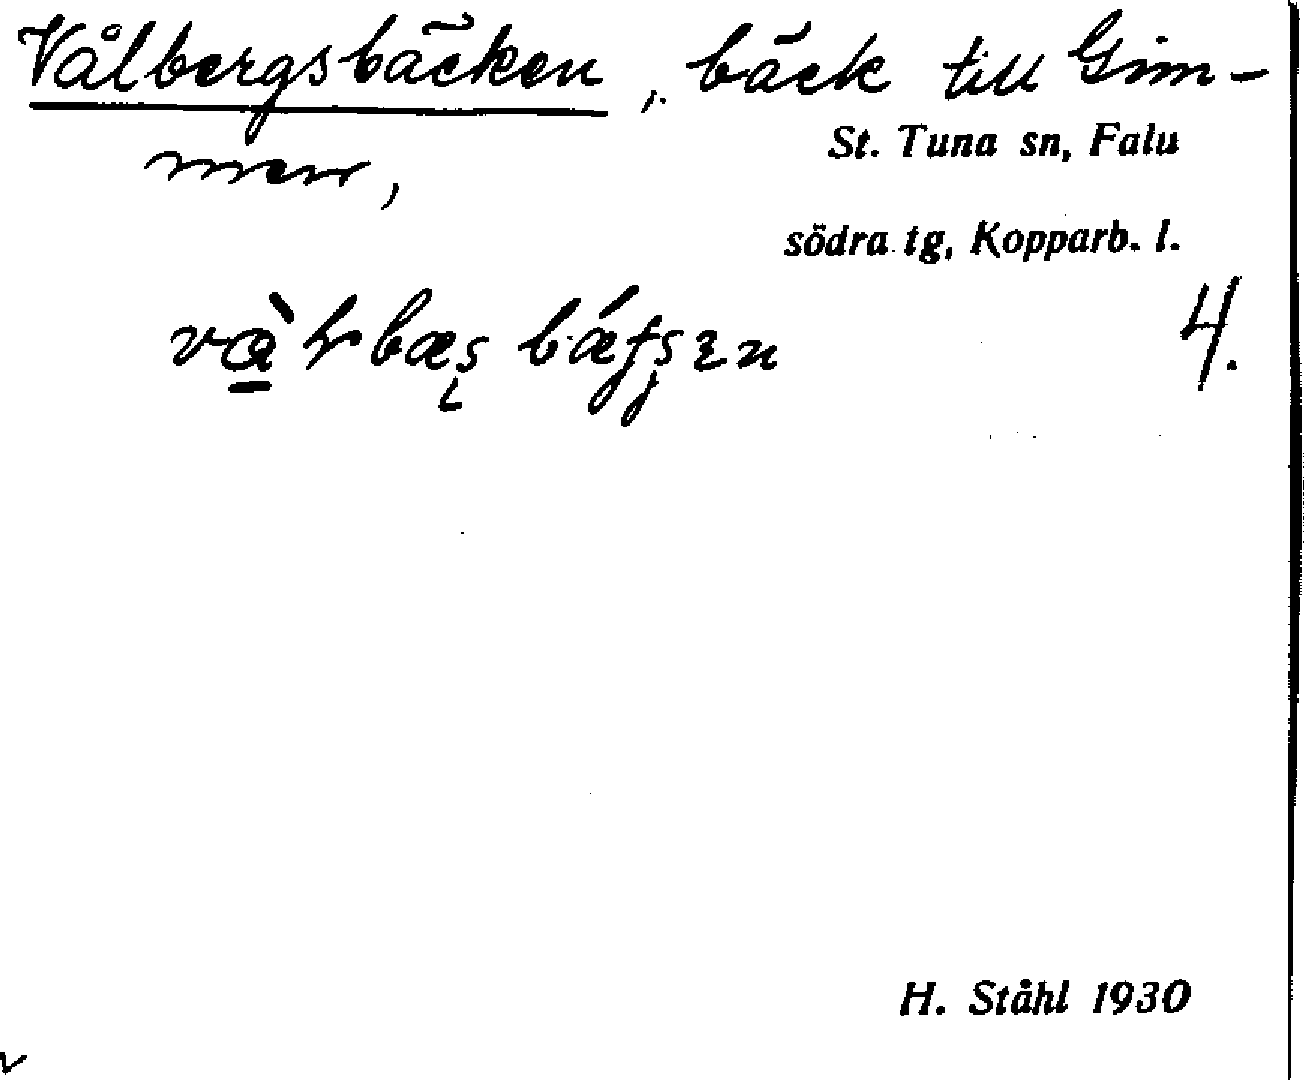 Vålbergsbäcken, bäck till Gim-
men,
St. Tuna sn, Falu
södra tg, Kopparb. l.
4.
H. Ståhl 1930